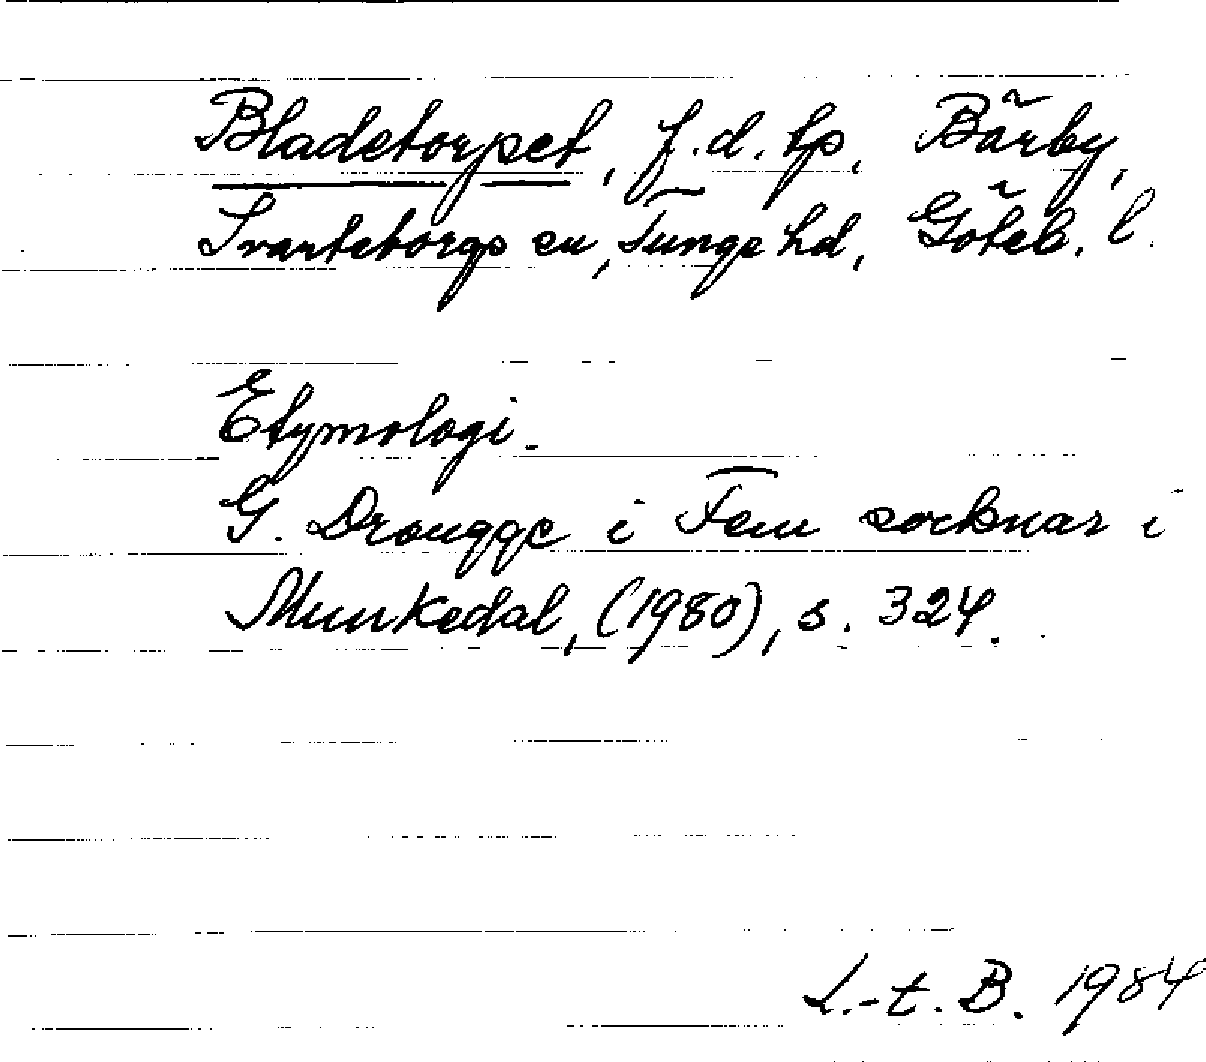 Bladetorpet, f.d. tp, Bärby,
Svarteborgs sn, Tunge hd, Göteb. l.
Etymologi.
G. Drougge i Fem socknar i
Munkedal, (1980), s. 324.
L.-t. B. 1984